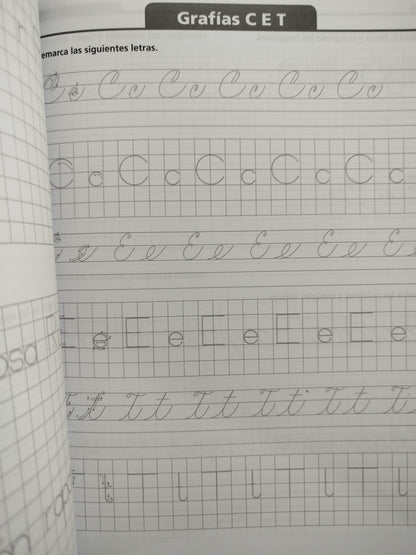 Grafías C E T
emarca las siguientes letras.
C c C c C c C c C c
C c C c C c C c C c
E e E e E e E e E
E e E e E e E e E e
T t T t T t T t T t
T t T t T t T t T
oso